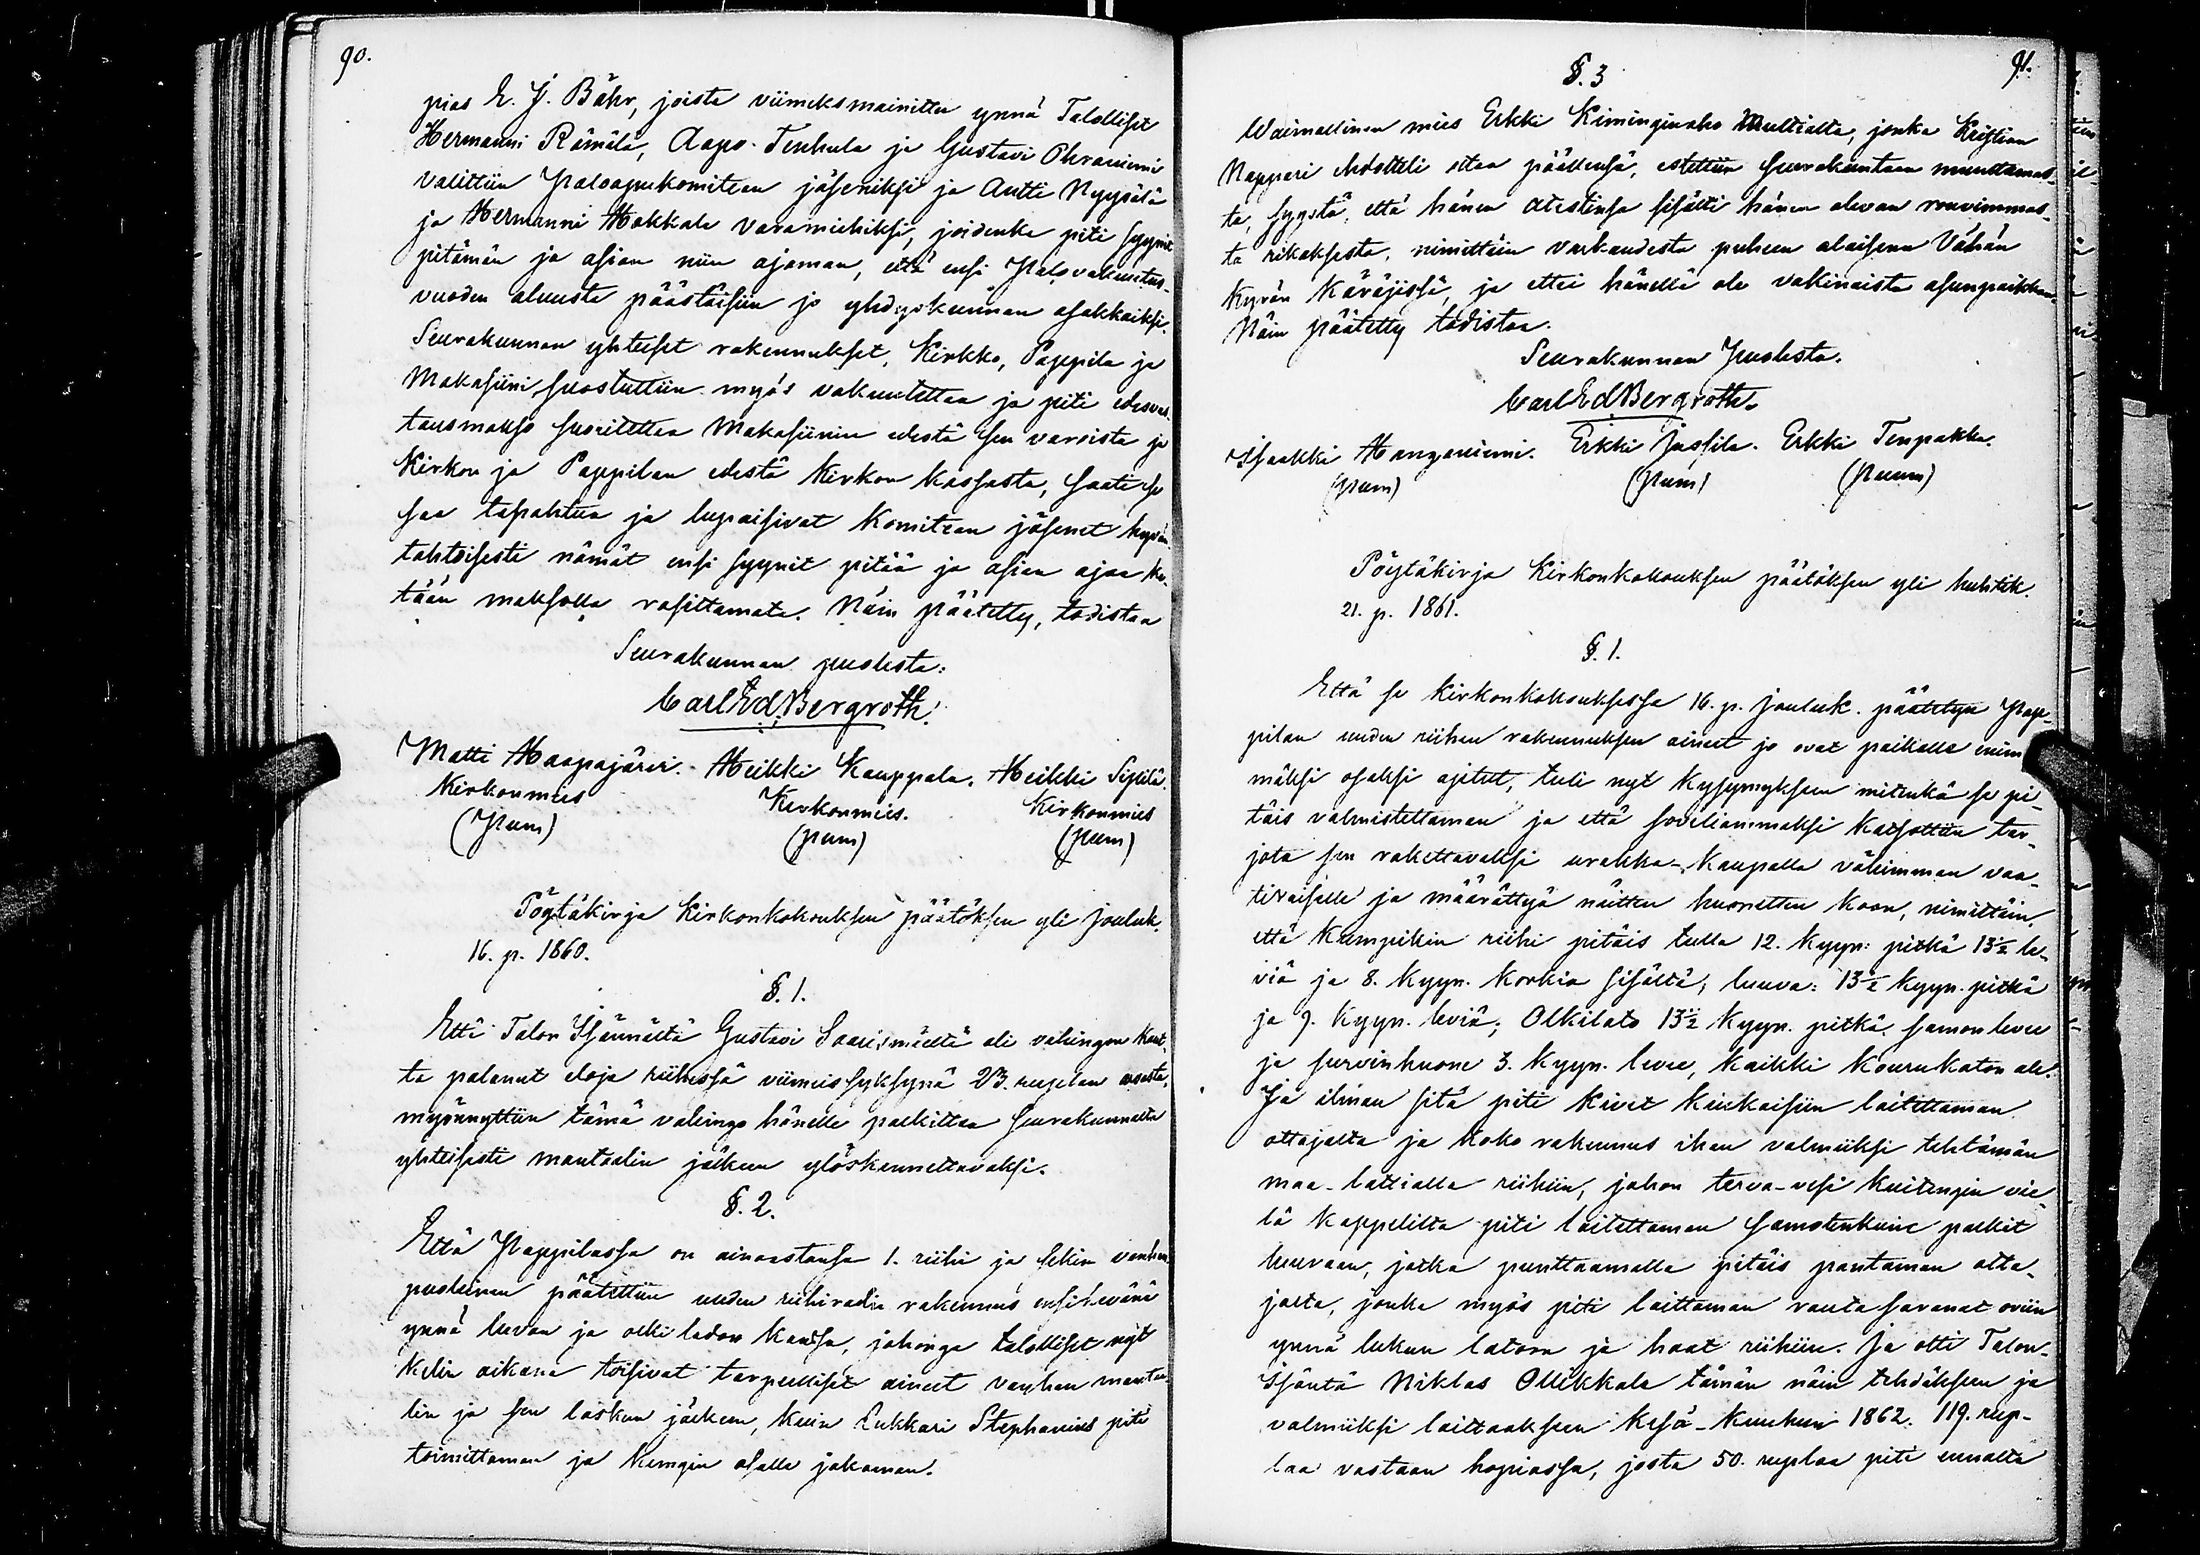 90.
pias E. J. Bähr, joista viimeksmainittu ynnä Talolliset
Hermanni Rämälä, Aapo Tenhula ja Gustavi Ohraniemi
valittiin Paloapukomitean jäseniksi ja Antti Nyysälä
ja Hermanni Hakkala varamiehiksi, joidenka piti syynit
pitämän ja asian niin ajaman, että ensi Palovakuutus-
vuoden alusta päästäisiin jo yhdyskunnan osakkaiksi.
Seurakunnan yhteiset rakennukset, Kirkko, Pappila ja
Makasiini suostuttiin myös vakuutettaa ja piti edesvas-
tausmakso suoritettaa Makasiinin edestä sen varoista ja
Kirkon ja Pappilan edestä Kirkon Kassasta, saati se
saa tapahtua ja lupaisivat Komitean jäsenet hyvän-
tahtoisesti nämät ensi syynit pitää ja asian ajaa ke-
tään maksolla rasittamata. Näin päätetty, todistaa
Seurakunnan puolesta:
Carl Ed. Bergroth.
Matti Haapajärvi. Heikki Kauppala. Heikki Sipilä.
Kirkonmies Kirkonmies. Kirkonmies
(Pum) (pum) (pum)
Pöytäkirja Kirkonkokouksen päätöksen yli Jouluk.
16. p. 1860.
§. 1.
Että Talon Isännältä Gustavi Saarismäeltä oli vahingon kaut-
ta palanut eloja riihessä viimeis syksynä 23. ruplan edestä,
myönnyttiin tämä vahingo hänelle palkittaa seurakunnalta
yhteisesti mantaalin jälkeen ylöskannettavaksi.
§. 2.
Että Pappilassa on ainoastansa 1. riihi ja sekin vanhan
puoleinen päätettiin uuden riihiradin rakennus ensi kevänä
ynnä luvan ja olki ladon kanssa, johonga talolliset nyt
Kelin aikana toisivat tarpeelliset aineet vanhan manta-
lin ja sen laskun jälkeen, kuin Lukkari Stephanius piti
toimittaman ja kungin osalle jakaman.
91.
§. 3
Waimollinen mies Erkki Kiminginaho Multialta, jonka Kristian
Nappari ehdotteli ottaa päällensä, estettiin seurakuntaan muuttamas-
ta, syystä, että hänen atestinsa sisälti hänen olevan rouvimmas-
ta rikoksesta, nimittäin varkaudesta puheen alaisena Vähän
Kyrön Käräjissä, ja ettei hänellä ole vakinaista asunpaikkaa.
Näin päätetty todistaa.
Seurakunnan Puolesta.
Carl Ed Bergroth.
Isaakki Hanganiemi. Erkki Jussila. Erkki Tenpakka.
(pum) (pum) (puum)
Pöytäkirja Kirkonkokouksen päätöksen yli huhtik.
21. p. 1861.
§. 1.
Että se Kirkonkokouksessa 16. p. Jouluk. päätetyn Pap-
pilan uuden riihen rakennuksen aineet jo ovat paikalle enim-
mäksi osaksi ajetut, tuli nyt Kysymykseen mitenkä se pi-
täis valmistettaman ja että soveliammaksi katsottiin tar-
jota sen rakettavaksi urakka-kaupalla vähimmän vaa-
tivaiselle ja määrättyä näitten huonetten koon, nimittäin,
että kumpikin riihi pitäis tulla 12. kyyn: pitkä 13½ le-
viä ja 8. kyyn. korkia sisältä; luuva: 13½ kyyn. pitkä
ja 9. kyyn. leviä; Olkilato 13½ kyyn. pitkä, saman levee
ja survinhuone 3. kyyn. levee, kaikki Kourukaton ale.
Ja ilman sitä piti kivet kiukaisiin laitettaman
ottajalta ja koko rakennus ihan valmiiksi tehtämän
maa-lattialla riihiin, johon terva-vesi kuitengin vie-
lä kappelilta piti laitettaman samotenkuin palkit
luuvaan, jotka punttaamalla pitäis pantaman otta-
jalta, jonka myös piti laittaman rauta saranat oviin
ynnä lukun latoon ja haat riihiin. Ja otti Talon-
Isäntä Niklas Ollikkala tämän näin tehdäkseen ja
valmiiksi laittaakseen Kesä-Kuuhun 1862. 119. rup-
laa vastaan hopiassa, josta 50. ruplaa piti ennalta